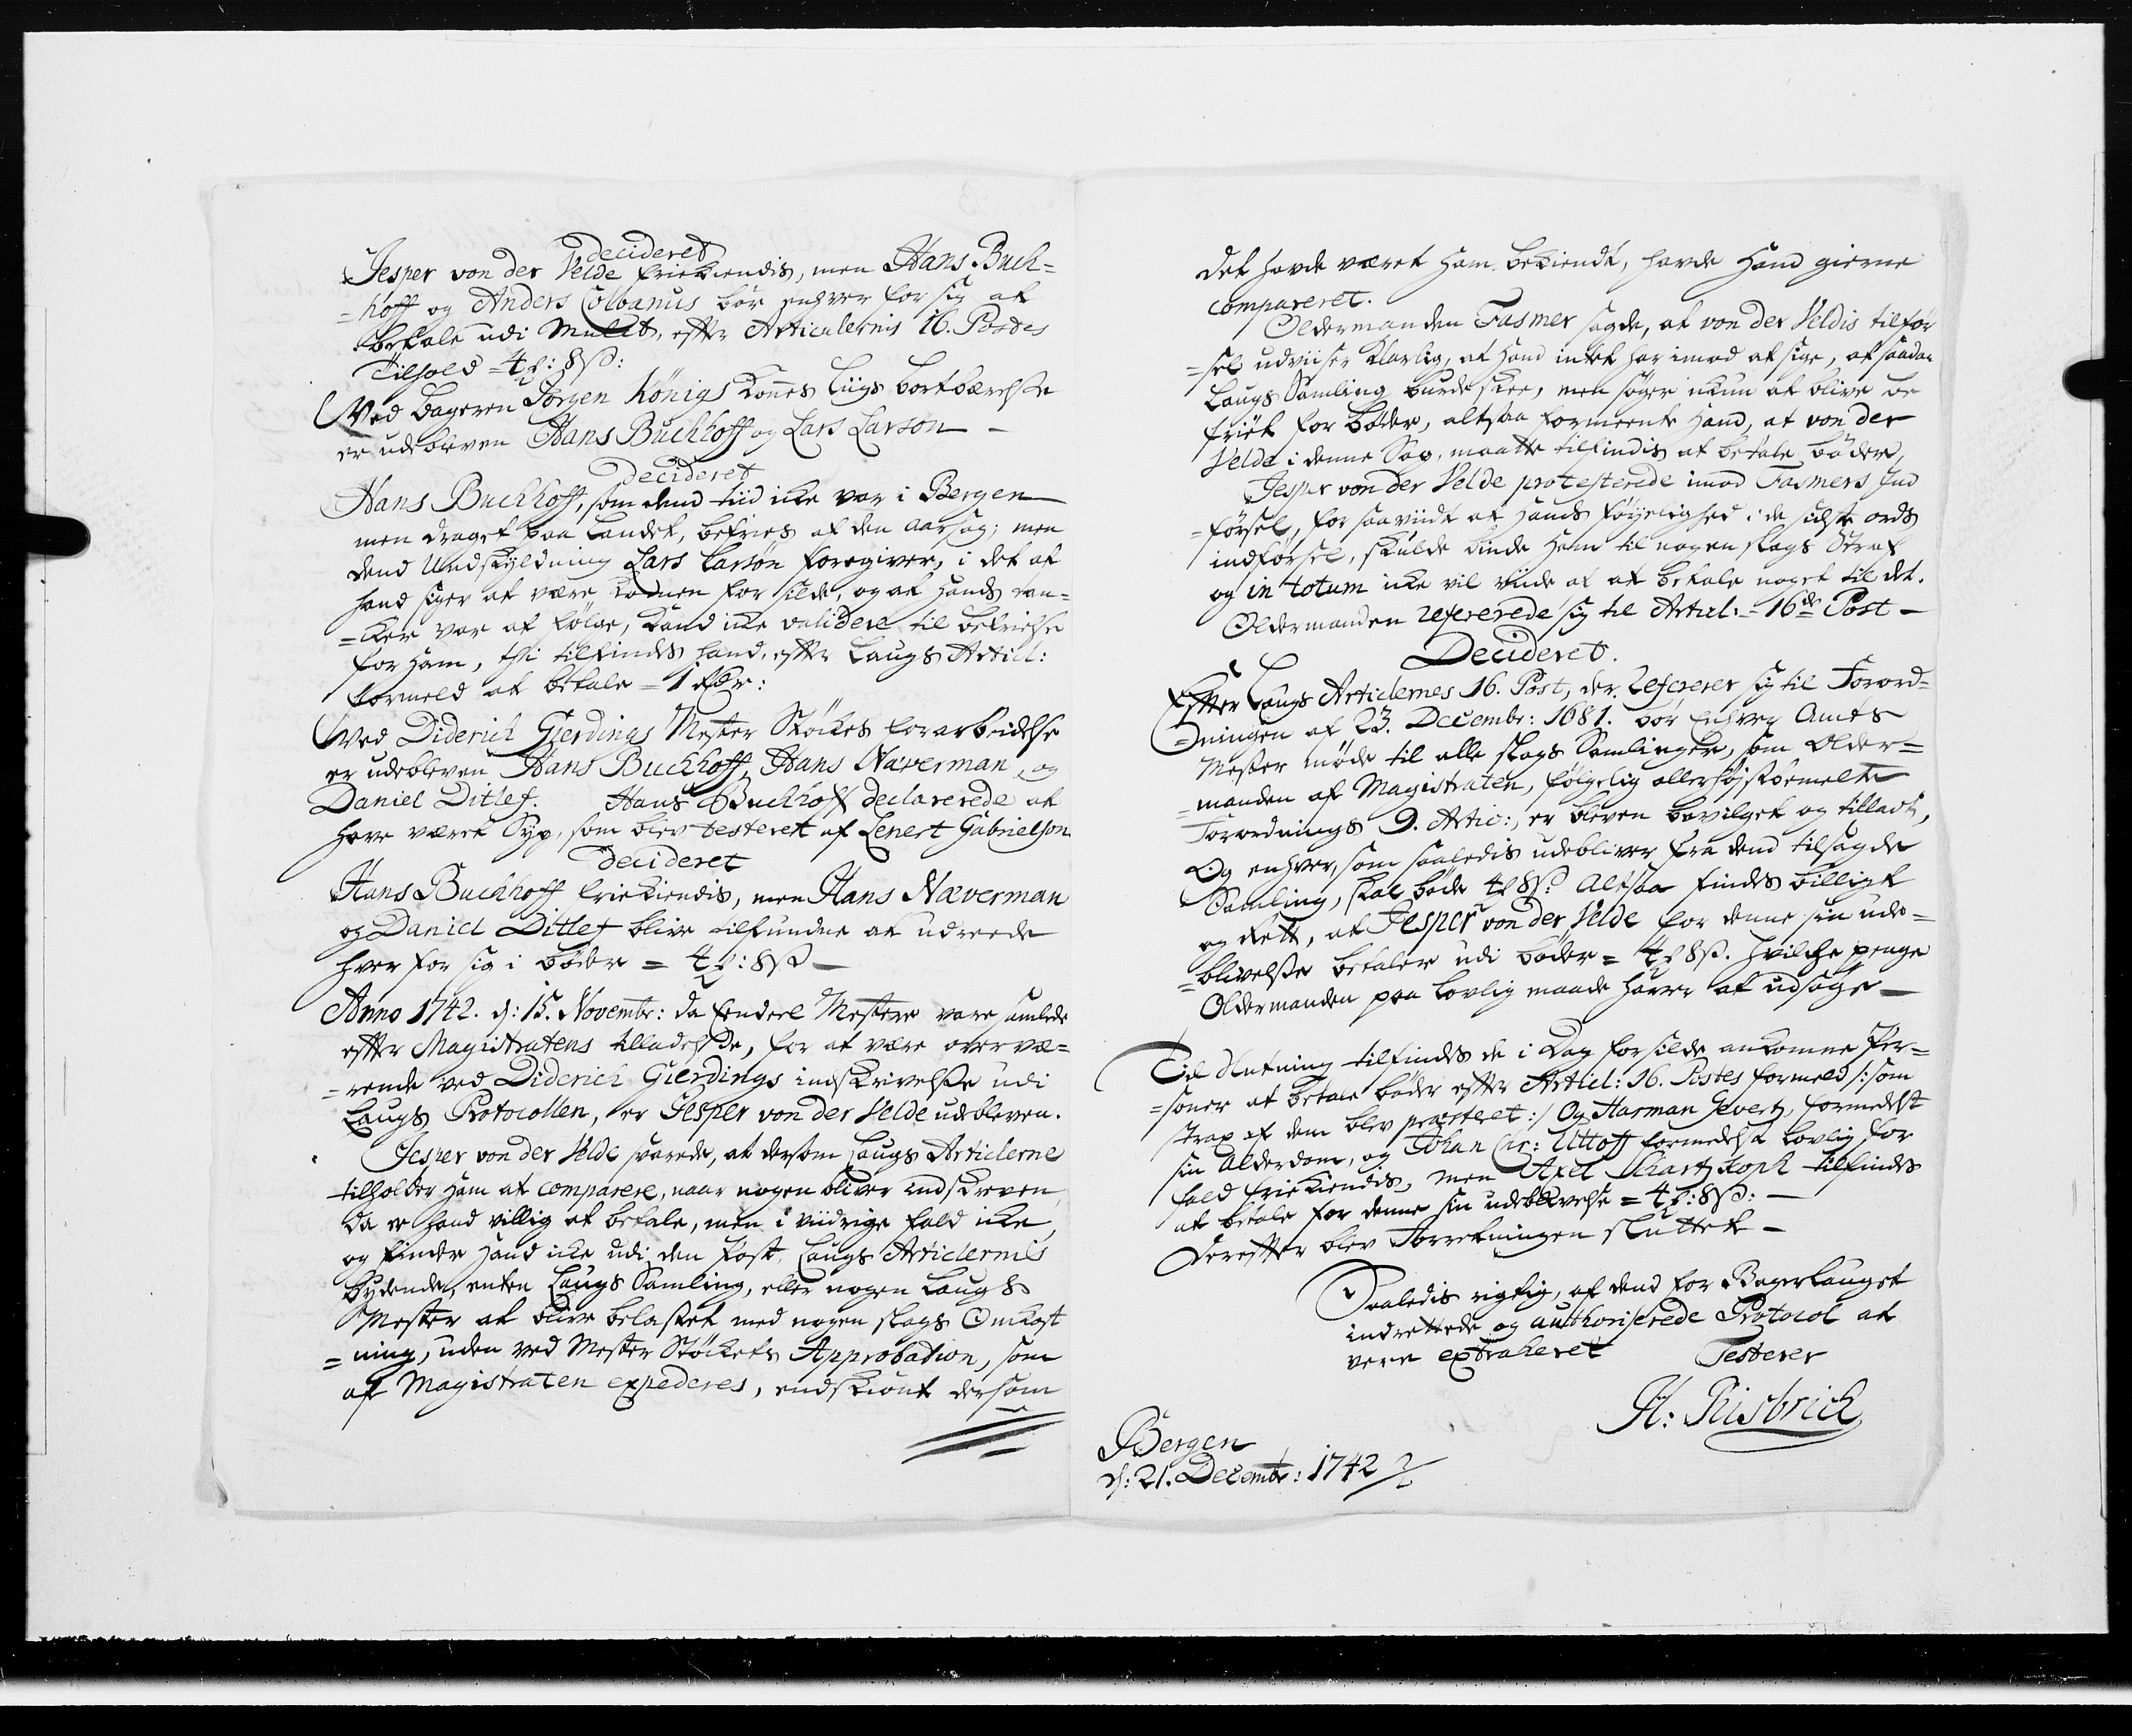 Decideret
Jesper von der Velde friekiendis, men Hans Buch=
=hoff og Anders Colbanus bør enhver for sig at
betale udi Mulct, efter Articulernis 16. Postes
Tilhold = 4 ₰: 8 ß:
Ved Bageren Jörgen Königs Kones Liigs bortbærelse
er udebleven Hans Buchhoff og Lars Larson
Decideret
Hans Buchhoff, som dend tiid icke var i Bergen
men draget paa Landet, befries af den aarsag; men
dend Undskyldning Lars Larsön foregiver, i det at
hand siger at være kommen for silde, og at hands tan=
=ker var at følge, kand icke validere til befrielse
for ham, thi tilfindes hand, efter Laugs Articl:
formeld at betale = 1 rdlr:
Ved Diderich Gierdings Mester Støckes forarbeidelse
er udebleven Hans Buchhoff, Hans Næverman, og
Daniel Ditlef. Hans Buchhoff declarerede at
have været Syg, som blev testeret af Lenert Gabrielson
Decideret
Hans Buchhoff friekiendis, men Hans Næverman
og Daniel Ditlef blive tilfundne at udreede
hver for sig i bøder = 4 ₰: 8 ß
Anno 1742. d: 15. Novembr: da Eendeel Mestere vare samlede
efter Magistratens tilladelse, for at være overvæ=
=rende ved Diderich Gierdings indskrivelse udi
Laugs Protocollen, er Jesper von der Velde udebleven.
Jesper von der Velde svarede, at dersom Laugs Articlerne
tilholder ham at comparere, naar nogen bliver indskreven,
da er hand villig at betale, men i viidrige fald icke,
og finder hand icke udi den Post, Laugs Articlernis
bydende, enten Laugs Samling, eller nogen Laugs
Mester at blive belastet med nogen slags Omkost
=ning, uden ved Mester Støckets Approbation, som
af Magistraten expederes, endskiønt dersom
det hafde været ham bekiendt, hafde hand gierne
compareret.
Oldermanden Fasmer sagde, at von der Veldis tilfør
=sel udviiser klarlig, at hand intet har imod at sige, at saadan
Laugs Samling burde skee, men søger ickun at blive be
friet for bøder, altsaa formeente hand, at von der
Velde i denne Sag, maatte tilfindis at betale bøder,
Jesper von der Velde protesterede imod Fasmers Ind
=førsel, for saaviidt at hands føyelighed i de sidste ords
indførsel, skulde binde ham til nogen slags Straf
og in totum icke vil viide af at betale noget til det.
Oldermanden refererede sig til Articl: 16de Post
Decideret.
Efter Laugs Articlernes 16. Post, der refererer sig til Forord=
=ningen af 23. Decembr: 1681. bør Enhver Amts
Mester møde til alle slags Samlinger, som Older=
=manden af Magistraten, følgelig allerhøjstbemelte
Forordnings 9. Artic:, er bleven bevilget og tilladt,
Og enhver, som saaledis udebliver fra dend tilsagde
Samling, skal bøde 4 ₰ 8 ß: Altsaa findes billigt
og Rett, at Jesper von der Velde for denne sin ude=
=blivelse betaler udi bøder = 4 ₰ 8 ß. hvilcke penge
Oldermanden paa lovlig maade haver at udsøge
Til Slutning tilfindes de i Dag forsilde ankomne Per=
=soner at betale bøder efter Articl: 16. Postes formeld /: som
strax af dem blev præsteret :/ Og Harman Gevertz, formedelst
sin Alderdom, og Johan Chr: Uttoff formedelst lovlig for
fald friekiendis, men Axel Schartz Koph tilfindes
at betale for denne sin udeblivelse = 4 ₰: 8 ß:
Derefter blev Forretningen sluttet
Saaledis rigtig, af dend for Bagerlauget
indrettede og authoriserede Protocol at
være extraheret Testerer
H: Risbrich
Bergen
d: 21. Decembr: 1742